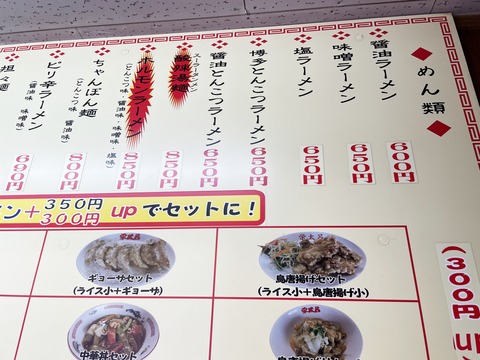 めん類
醤油ラーメン
600円
味噌ラーメン
650円
塩ラーメン
650円
博多とんこつラーメン
650円
醤油とんこつラーメン
650円
スーラータンメン
酸辣湯麺
850円
ホルモンラーメン
(とんこつ味・醤油味・味噌味・塩味)
850円
ちゃんぽん麺
(とんこつ味 醤油味)
800円
ピリ辛ラーメン
(醤油味 味噌味)
690円
坦々麺
ン+350円
300円 upでセットに!
ギョーザセット
(ライス小+ギョーザ)
鳥唐揚げセット
(ライス小+鳥唐揚げ小)
中華丼セット
(300円
up